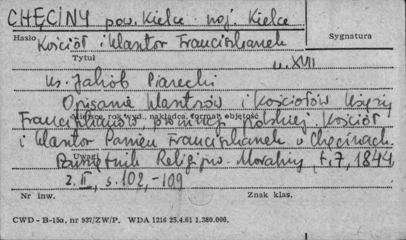 CHĘCINY pow. Kielce woj. Kielce
Hasło Kościół i klasztor Franciszkanek
Sygnatura
Tytuł w. XVII
Ks. Jakób Piasecki
Opisanie klasztorów i kościołów księży
miejsce, rok wyd., nakładca, format, objętość
Franciszkanów prowincji polskiej. Kościół
i klasztor Panien Franciszkanek w Chęcinach.
Uwagi
Pamiętnik Religijno-Moralny, t. 7, 1844
z. II, s. 102,-109
Nr inw.
Znak klas.
CWD - B-15a, nr 937/ZW/P. WDA 1216 25.4.61 1.380.000.